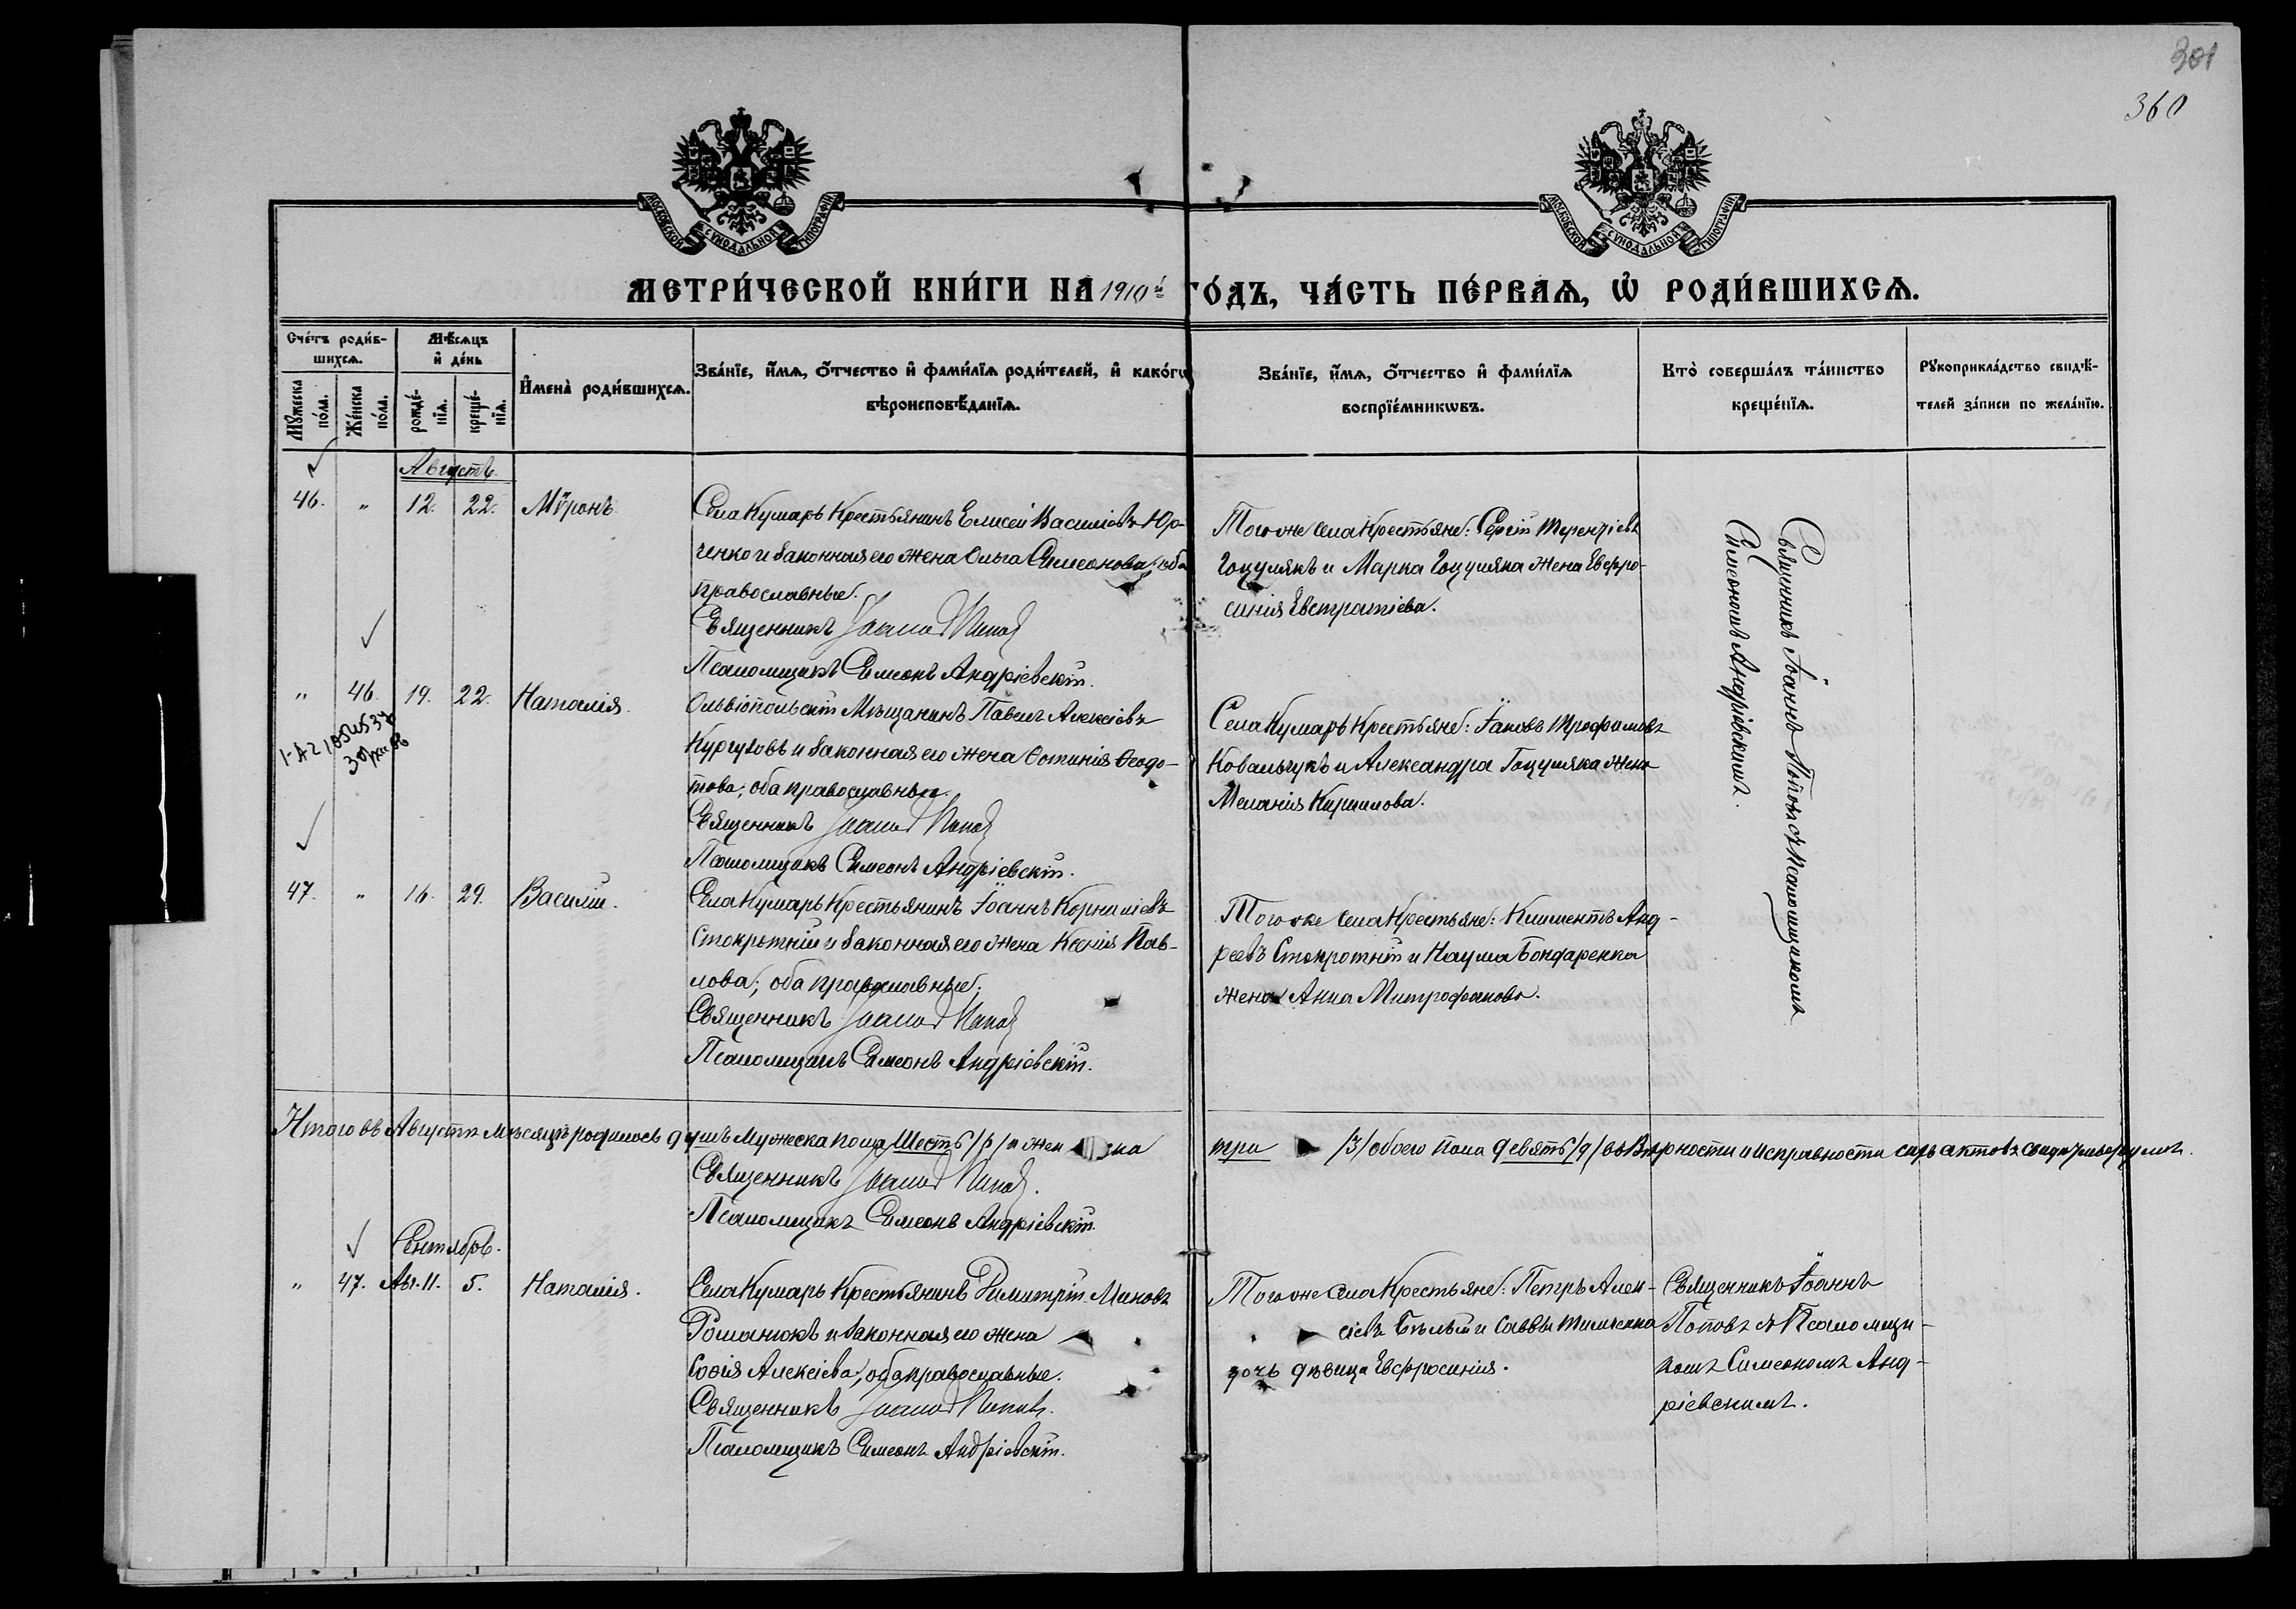 301
360
МОСКОВСКОЙ СѴНОДАЛЬНОЙ ТИПОГРАФІИ
МОСКОВСКОЙ СѴНОДАЛЬНОЙ ТИПОГРАФІИ
МЕТРИ́ЧЕСКОЙ КНИ́ГИ НА 1910й ГО́ДЪ, ЧА́СТЬ ПЕ́РВАѦ, Ѡ҆ РОДИ́ВШИХСѦ.
Сче́тъ роди́в-
шихсѧ.
Мꙋ́жеска по́ла.
Же́нска по́ла.
Мѣ́сѧцъ
и҆ де́нь
рожде́-
нїѧ.
креще́-
нїѧ.
И҆мена̀ роди́вшихсѧ.
Зва́нїе, и҆́мѧ, ѻ҆́тчество и҆ фами́лїѧ роди́телей, и҆ како́гѡ
вѣроисповѣ́данїѧ.
Зва́нїе, и҆́мѧ, ѻ҆́тчество и҆ фами́лїѧ
воспрїе́мникѡвъ.
Кто̀ соверша́лъ та́инство
креще́нїѧ.
Рꙋкоприкла́дство свидѣ́-
телей за́писи по жела́нїю.
Августъ.
46. " 12. 22. Мѵронъ
Села Кумарь Крестьянинъ Елисей Василіевъ Юр-
ченко и законная его жена Ольга Симеонова; оба
православные.
Священникъ Іоаннъ Поповъ
Псаломщикъ Симеонъ Андріевскій.
Того же села Крестьяне: Сергій Терентіевъ
Гоцулякъ и Марка Гоцуляка жена Евфро-
синія Евстратіева.
Священникъ Іоаннъ Поповъ съ Псаломщикомъ
Симеономъ Андріевскимъ.
" 46. 19. 22. Наталія.
Ольвіопольскій Мѣщанинъ Павелъ Алексіевъ
и законная его жена Фотинія Ѳеодо-
това; оба православные.
Священникъ Іоаннъ Поповъ
Псаломщикъ Симеонъ Андріевскій.
Села Кумарь Крестьяне: Іаковъ Трофимовъ
Ковальчукъ и Александра Гоцуляка жена
Меланія Кириллова.
47. " 16. 29. Василій.
Села Кумарь Крестьянинъ Іоаннъ Корниліевъ
Стокротній и законная его жена Ксенія Пав-
лова; оба православные.
Священникъ Іоаннъ Поповъ
Псаломщикъ Симеонъ Андріевскій.
Того же села Крестьяне: Климентъ Анд-
реевъ Стокротній и Наума Бондаренка
жена Анна Митрофанова.
Итого въ Августѣ мѣсяцѣ родилось душъ мужеска пола шесть /6/ а жен ска
три /3/ обоего пола девять /9/ въ вѣрности и исправности сихъ актовъ свидѣтельствуемъ.
Священникъ Іоаннъ Поповъ.
Псаломщикъ Симеонъ Андріевскій.
Сентябрь.
" 47. Ав. 11. 5. Наталія.
Села Кумарь Крестьянинъ Димитрій Миновъ
Романюкъ и законная его жена
Софія Алексіева; оба православные.
Священникъ Іоаннъ Поповъ.
Псаломщикъ Симеонъ Андріевскій.
Того же села Крестьяне: Петръ Алек-
сіевъ Бѣлый и Саввы Тимченка
дочь дѣвица Евфросинія.
Священникъ Іоаннъ
Поповъ съ Псаломщи-
комъ Симеономъ Анд-
ріевскимъ.